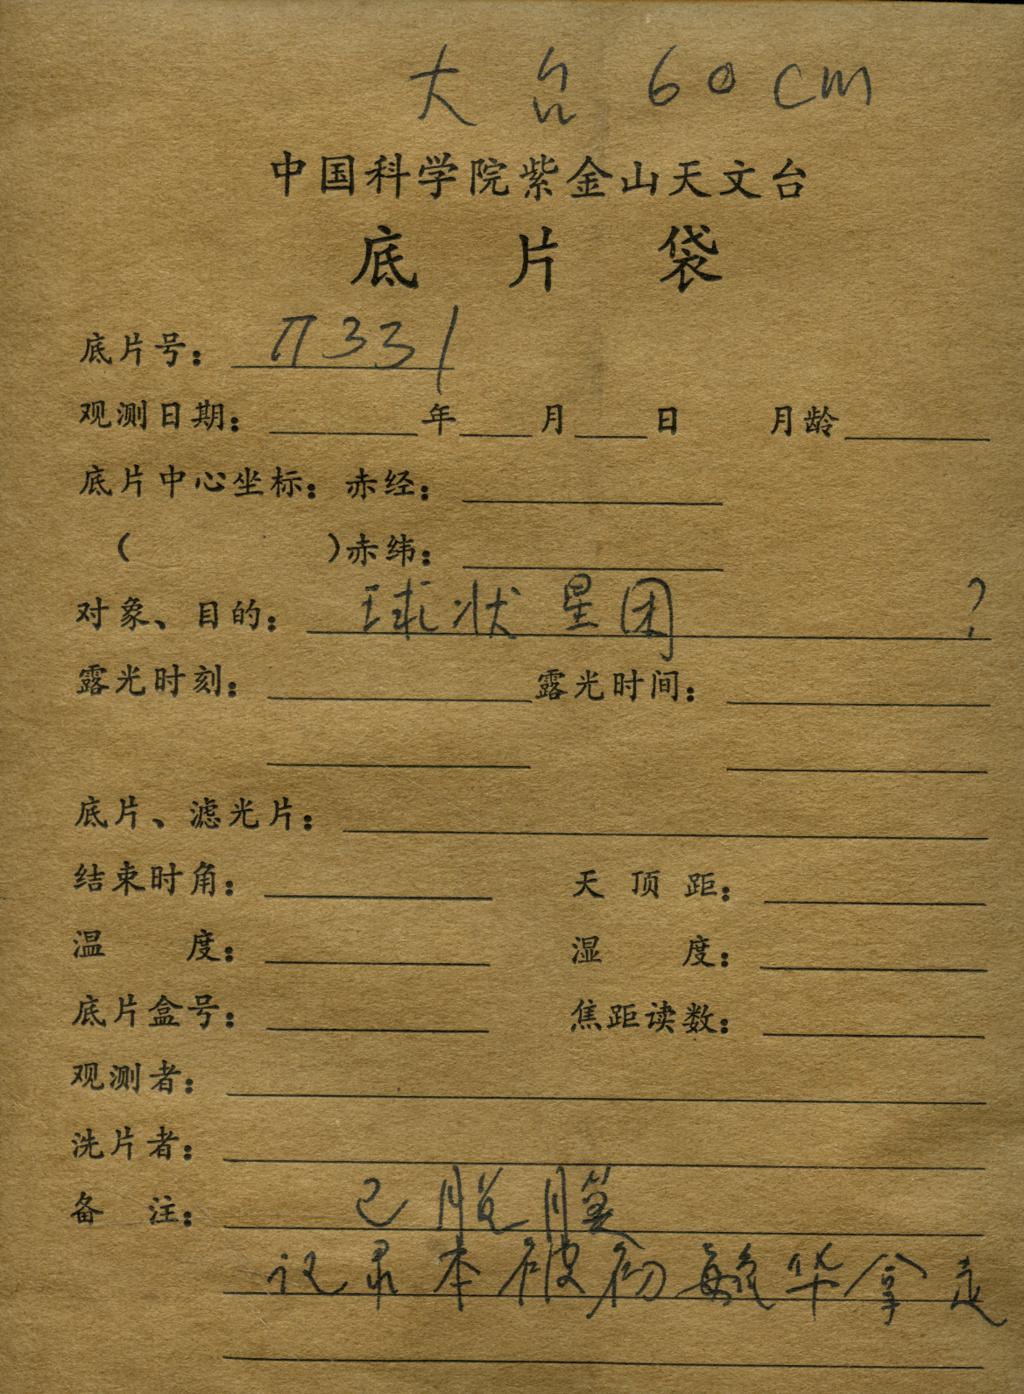 大台 60cm
中国科学院紫金山天文台
底片袋
底片号：π331
观测日期：____年__月__日 月龄____
底片中心坐标：赤经：
（ ）赤纬：
对象、目的：球状星团 ？
露光时刻： 露光时间：
底片、滤光片：
结束时角： 天顶距：
温度： 湿度：
底片盒号： 焦距读数：
观测者：
洗片者：
备注：已脱膜
记录本被杨毓华拿走